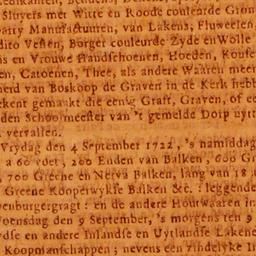 Sluyers met Witte en Roode couleurde Gron
partty Manufactuuren, van Lakens, Fluweelen
dito Vesten, Borger couleurde Zyde en Wolle
en Vrouwe Handschoenen, Hoeden, Kouse
en, Catoenen, Thee, als andere Waaren meer
van Boskoop de Graven in de Kerk heb
ekent gemaakt die eenig Graff, Graven, of e
den Schoolmeester van 't gemelde Dorp uyt
vervallen.
Vrydag den 4 September 1722, 's namiddag
a 60 voet, 200 Enden van Balken, 600 Gr
700 Greene en Nerva Balken, lang van 18
Greene Kooperwykse Balken &c. leggende
enburgergragt: en de andere Houtwaaren in
oensdag den 9 September, 's morgens ten 9
dse en andere Inlandse en Uytlandse Lakene
Koopmanschappen; nevens een zindelyke In